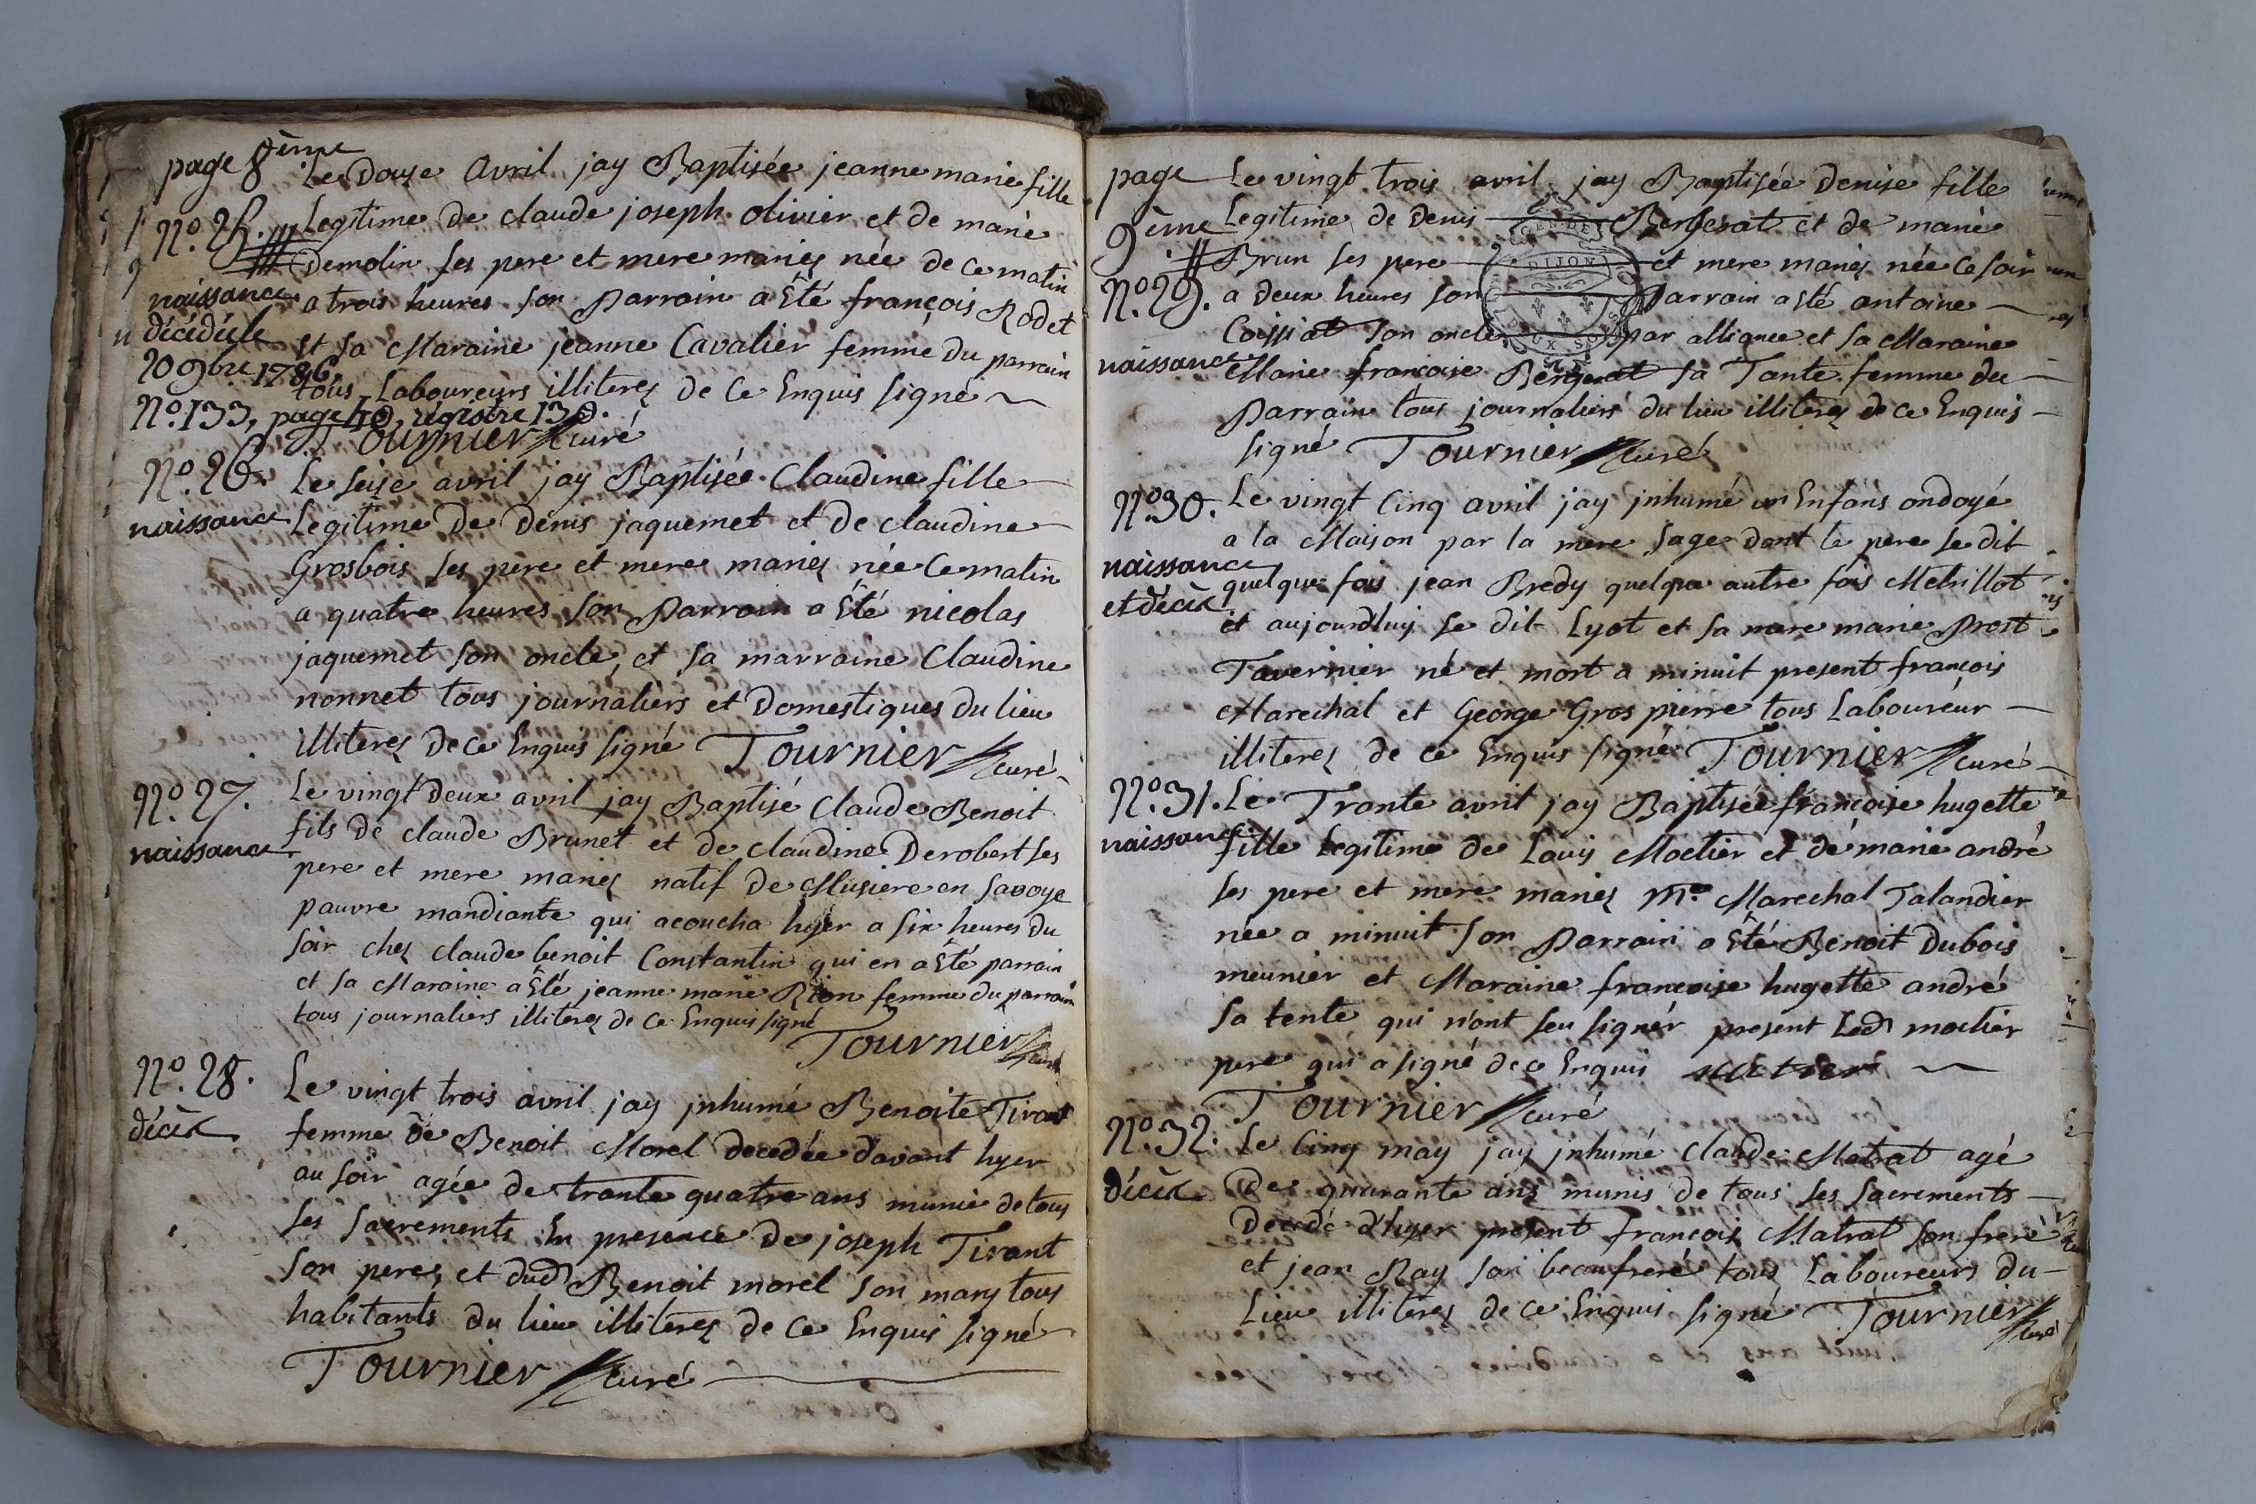 page 8ème
Le Douze Avril jay Baptisée jeanne marie fille
N.° 25. Legitime de claude joseph olivier et de marie
Demolin ses pere et mere mariez née de ce matin
naissance a trois heures son Parrain a Eté françois Rodet
décédéele et sa Maraine jeanne Cavalier femme du parrain
20 9bre 1786. tous Laboureurs illiterez de ce Enquis signé
N.° 133, page 40, régistre 130.
Tournier curé
N.° 26. Le seize avril jay Baptisée Claudine fille
naissance Legitime De Denis jaquemet et de claudine
Grosbois ses pere et mere mariez née Ce matin
a quatre heures son Parrain a Eté nicolas
jaquemet son oncle, et sa marraine Claudine
nonnet tous journaliers et Domestiques du lieu
illiterez de ce Enquis signé Tournier curé
N.° 27. Le vingt Deux avril jay Baptisé Claude Benoit
fils de claude Brunet et de claudine Derobert ses
naissance pere et mere mariez natif de Musiere en Savoye
pauvre mandiante qui acoucha hyer a six heures du
soir chez claude benoit Constantin qui en a Eté parrain
et sa Maraine a Eté jeanne marie Rion femme du parrain
tous journaliers illiterez de ce Enquis signé
Tournier curé
N.° 28. Le vingt trois avril jay jnhumé Benoite Tirant
décès femme de Benoit Morel decedée davant hyer
au soir agée de trante quatre ans munie de tous
ses sacrements En presence de joseph Tirant
son perez et dud Benoit morel son mary tous
habitants du lieu illiterez de ce Enquis signé
Tournier curé
page Le vingt trois avril jay Baptisée Denise fille
9ème Legitime de Denis Bergerat et de marie
Brun ses pere et mere mariez née ce soir
N.° 29. a deux heures son Parrain a Eté antoine
Coissiat son oncle par alliance et sa Maraine
naissance Marie françoise Bergerat sa Tante femme du
Parrain tous journaliers du lieu illiterez de ce Enquis
signé Tournier curé
N.° 30. Le vingt Cinq avril jay jnhumé un Enfans ondoyé
a la Maison par la mere sage dont le pere se dit
naissance quelque fois jean Bredy quelque autre fois Metrillot
et décès et aujourdluy se dit Lyot et sa mere marie Prost
Tavernier né et mort a minuit present françois
Marechal et George Gros pierre tous Laboureur
illiterez de ce Enquis signé Tournier curé
N.° 31. Le Trante avril jay Baptisée françoise hugette
naissance fille Legitime de Louis Moctier et de marie andré
ses pere et mere mariez M.e Marechal Talandier
née a minuit son Parrain a Eté Benoit Dubois
meunier et Maraine françoise hugette andré
sa tente qui n'ont seu signér present Led moctier
pere qui a signé de ce Enquis moctier
Tournier curé
N.° 32. Le Cinq may jay jnhumé Claude Matrat agé
décès De quarante ans munis de tous ses sacrements
Decedé d'hyer present françois Matrat son frere
et jean Ray son beaufreré tous Laboureurs du
Lieu illiterez de ce Enquis signé Tournier
curé
GEN DE
DIJON
DEUX SOLS